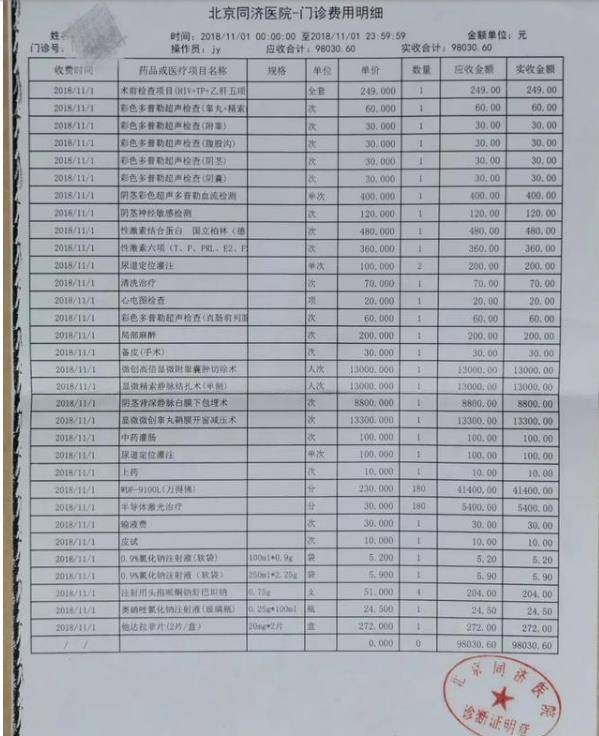 北京同济医院-门诊费用明细
时间:2018/11/01 00:00:00 至2018/11/01 23:59:59 金额单位: 元
门诊号. 操作员: jy 应收合计: 98030.60 实收合计: 98030.60
收费时间 药品或医疗项目名称 规格 单位 单价 数量 应收金额 实收金额
2018/11/1 术前检查项目(HIV+TP+乙肝五项 全套 249.000 1 249.00 249.00
2018/11/1 彩色多普勒超声检查(睾丸+精索 次 60.000 1 60.00 60.00
2018/11/1 彩色多普勒超声检查(附睾) 次 30.000 1 30.00 30.00
2018/11/1 彩色多普勒超声检查(腹股沟) 次 30.000 1 30.00 30.00
2018/11/1 彩色多普勒超声检查(阴茎) 次 30.000 1 30.00 30.00
2018/11/1 彩色多普勒超声检查(阴囊) 次 30.000 1 30.00 30.00
2018/11/1 阴茎彩色超声多普勒血流检测 单次 400.000 1 400.00 400.00
2018/11/1 阴茎神经敏感检测 次 120.000 1 120.00 120.00
2018/11/1 性激素结合蛋白 国立柏林（德 次 480.000 1 480.00 480.00
2018/11/1 性激素六项（T、P、PRL、E2、F 次 360.000 1 360.00 360.00
2018/11/1 尿道定位灌注 单次 100.000 2 200.00 200.00
2018/11/1 清洗治疗 次 70.000 1 70.00 70.00
2018/11/1 心电图检查 项 20.000 1 20.00 20.00
2018/11/1 彩色多普勒超声检查(直肠前列腺 次 60.000 1 60.00 60.00
2018/11/1 局部麻醉 次 200.000 1 200.00 200.00
2018/11/1 备皮(手术) 次 30.000 1 30.00 30.00
2018/11/1 微创高倍显微附睾囊肿切除术 人次 13000.000 1 13000.00 13000.00
2018/11/1 显微精索静脉结扎术(单侧) 人次 13000.000 1 13000.00 13000.00
2018/11/1 阴茎背深静脉白膜下包埋术 次 8800.000 1 8800.00 8800.00
2018/11/1 显微微创睾丸鞘膜开窗减压术 次 13300.000 1 13300.00 13300.00
2018/11/1 中药灌肠 次 100.000 1 100.00 100.00
2018/11/1 尿道定位灌注 单次 100.000 1 100.00 100.00
2018/11/1 上药 次 10.000 1 10.00 10.00
2018/11/1 WDF-9100L(万得佛) 分 230.000 180 41400.00 41400.00
2018/11/1 半导体激光治疗 分 30.000 180 5400.00 5400.00
2018/11/1 输液费 次 30.000 1 30.00 30.00
2018/11/1 皮试 次 10.000 1 10.00 10.00
2018/11/1 0.9%氯化钠注射液(软袋) 100ml*0.9g 袋 5.200 1 5.20 5.20
2018/11/1 0.9%氯化钠注射液（软袋) 250ml*2.25g 袋 5.900 1 5.90 5.90
2018/11/1 注射用头孢哌酮钠舒巴坦钠 0.75g 支 51.000 4 204.00 204.00
2018/11/1 奥硝唑氯化钠注射液(玻璃瓶) 0.25g*100ml 瓶 24.500 1 24.50 24.50
2018/11/1 他达拉非片(2片/盒) 20mg*2片 盒 272.000 1 272.00 272.00
/ / 0.000 0 98030.60 98030.60
北京同济医院
诊断证明章